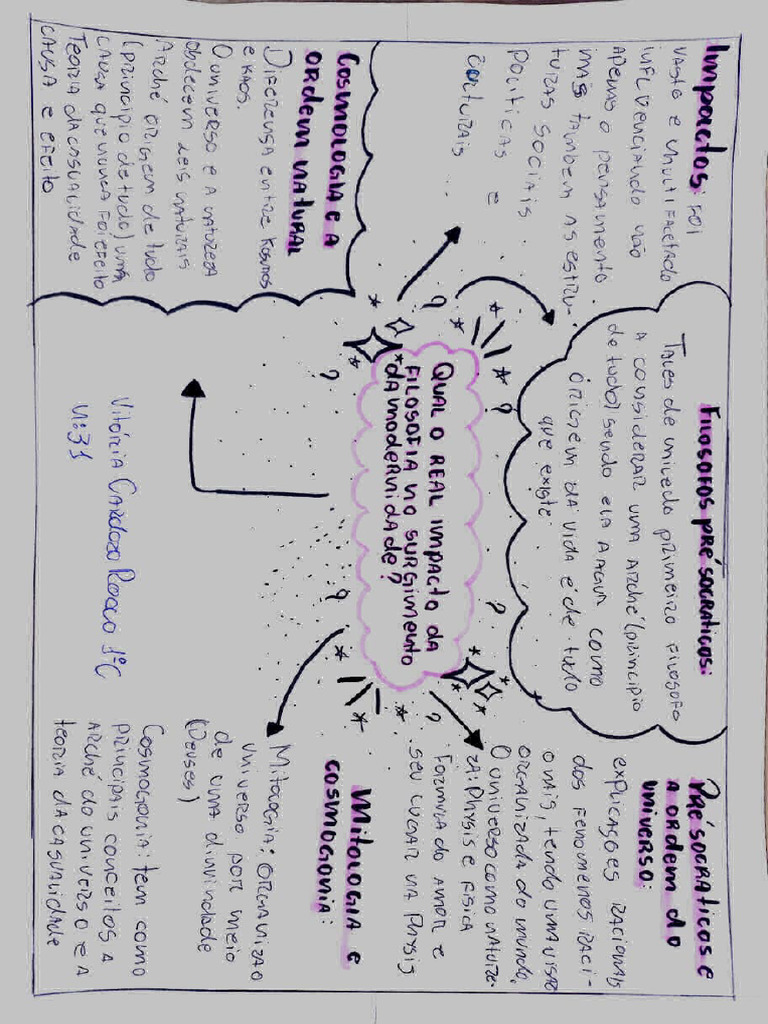 Impactos: foi
vasto e multifacetado
influenciando não
apenas o pensamento
mas também as estru-
turas sociais
politicas e
culturais...
Filosofos pré socraticos:
Tales de mileto primeiro filosofo
a considerar uma arché (principio
de tudo) sendo ela a agua como
órigem da vida é de tudo
que existe.
Pré socraticos e
a ordem do
universo:
explicações racionais
dos fenomenos raci-
onais, tendo uma visão
organizada do mundo,
O universo como nature-
za: Physis e física
Formula do amor e
seu lugar na Physis
Qual o real impacto da
filosofia no surgimento
da modernidade?
Cosmologia e a
ordem natural
Diferensa entre kosmos
e kaos.
O universo e a natureza
obdecem leis naturais
Arché origem de tudo
(principio de tudo) uma
causa que nunca foi efeito
Teoria da casualidade
causa e efeito
Mitologia e
cosmogonia:
Mitologia: organizão
universo por meio
de uma divindade
(Deuses)
Cosmogonia: tem como
principais conceitos a
arché do universo e a
teoria da casualidade
Vitória Cardozo 1°C
n:31